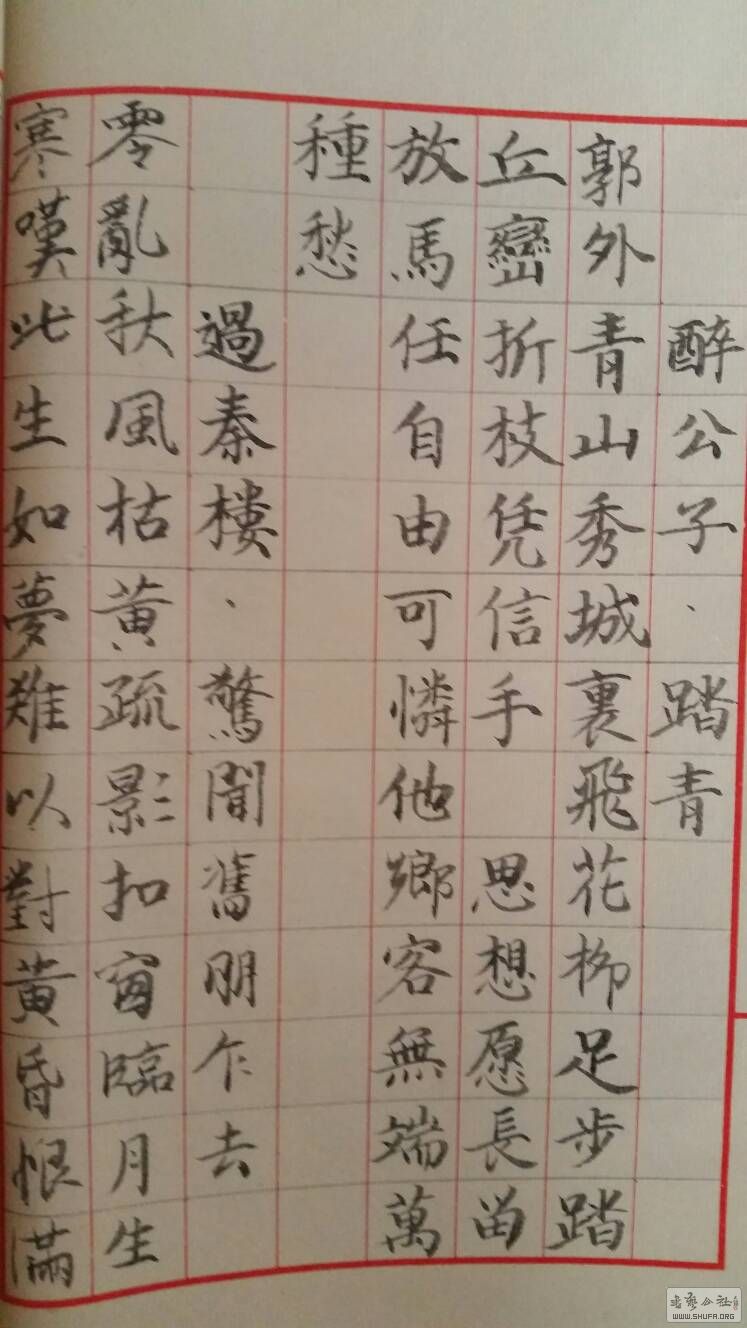 醉公子·踏青
郭外青山秀城裏飛花柳足步踏
丘巒折枝凭信手 思想愿長留
放馬任自由可憐他鄉客無端萬
種愁
過秦樓·驚聞舊朋乍去
零亂秋風枯黃疏影扣窗臨月生
寒嘆此生如夢難以對黃昏恨滿
WWW.SHUFA.ORG